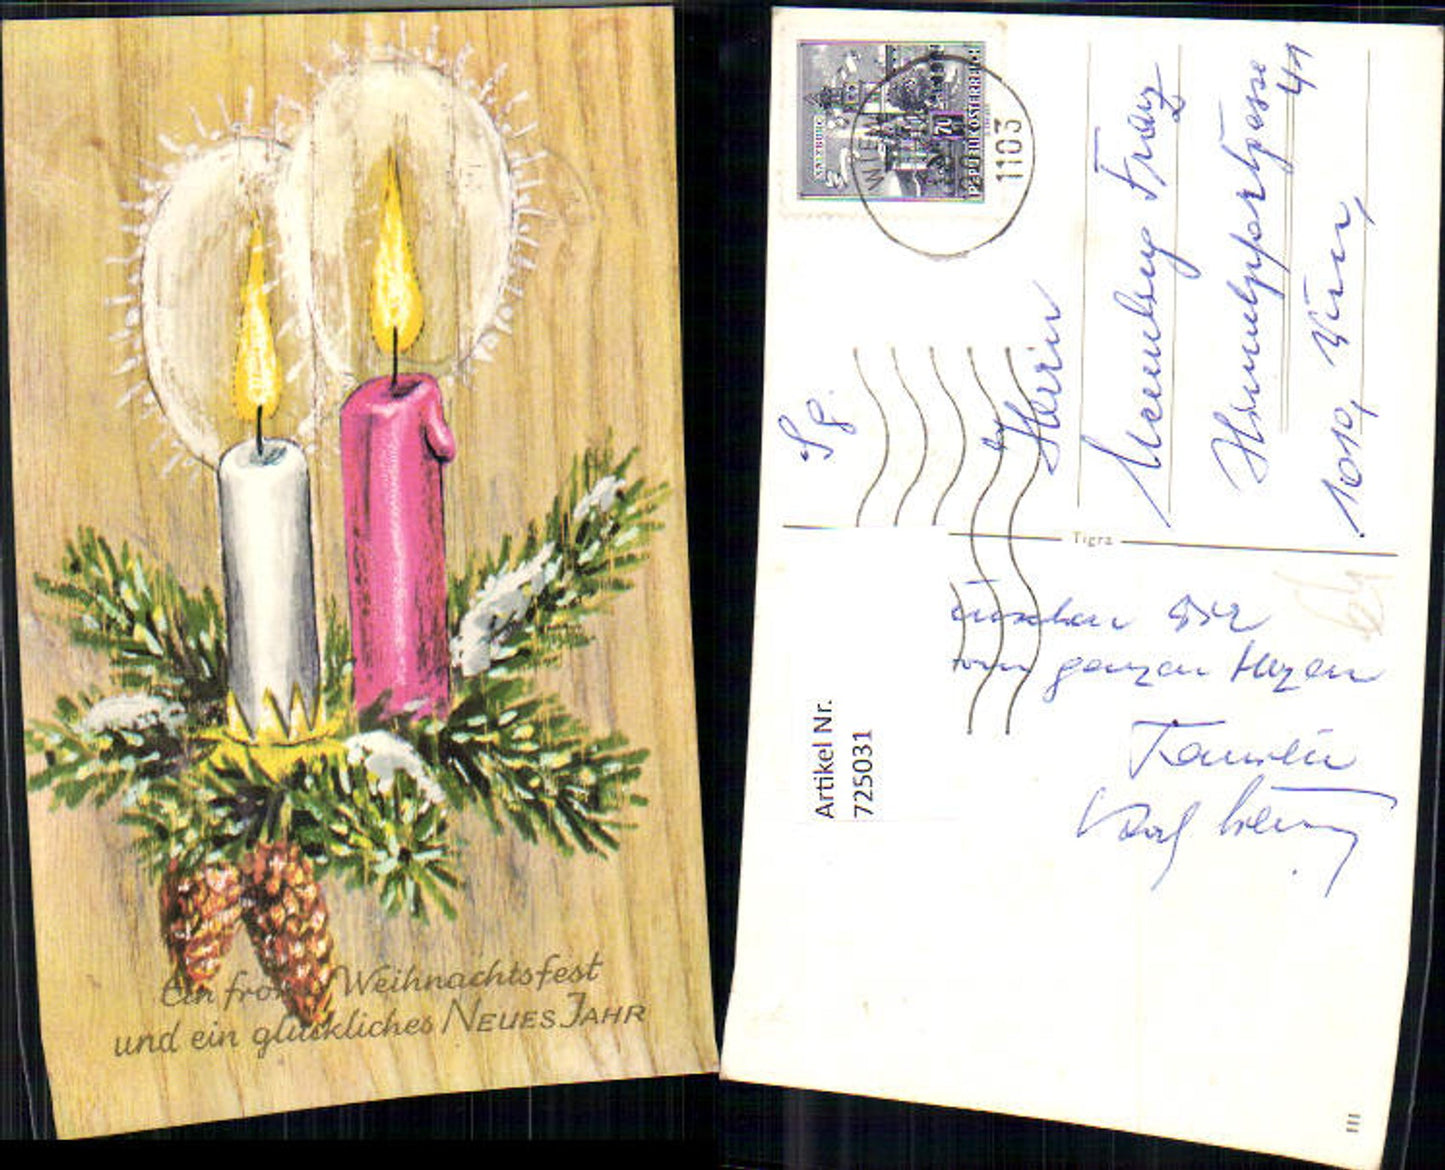 Ein frohes Weihnachtsfest
und ein glückliches NEUES JAHR
SALZBURG
70
REPUBLIK ÖSTERREICH
WIEN
1103
Sg.
Herrn
Franz
Himmelpfortgasse
1010, Wien,
Tigra
wünschen Dir
vom ganzen Herzen
Familie
Karl
Artikel Nr.
725031
III